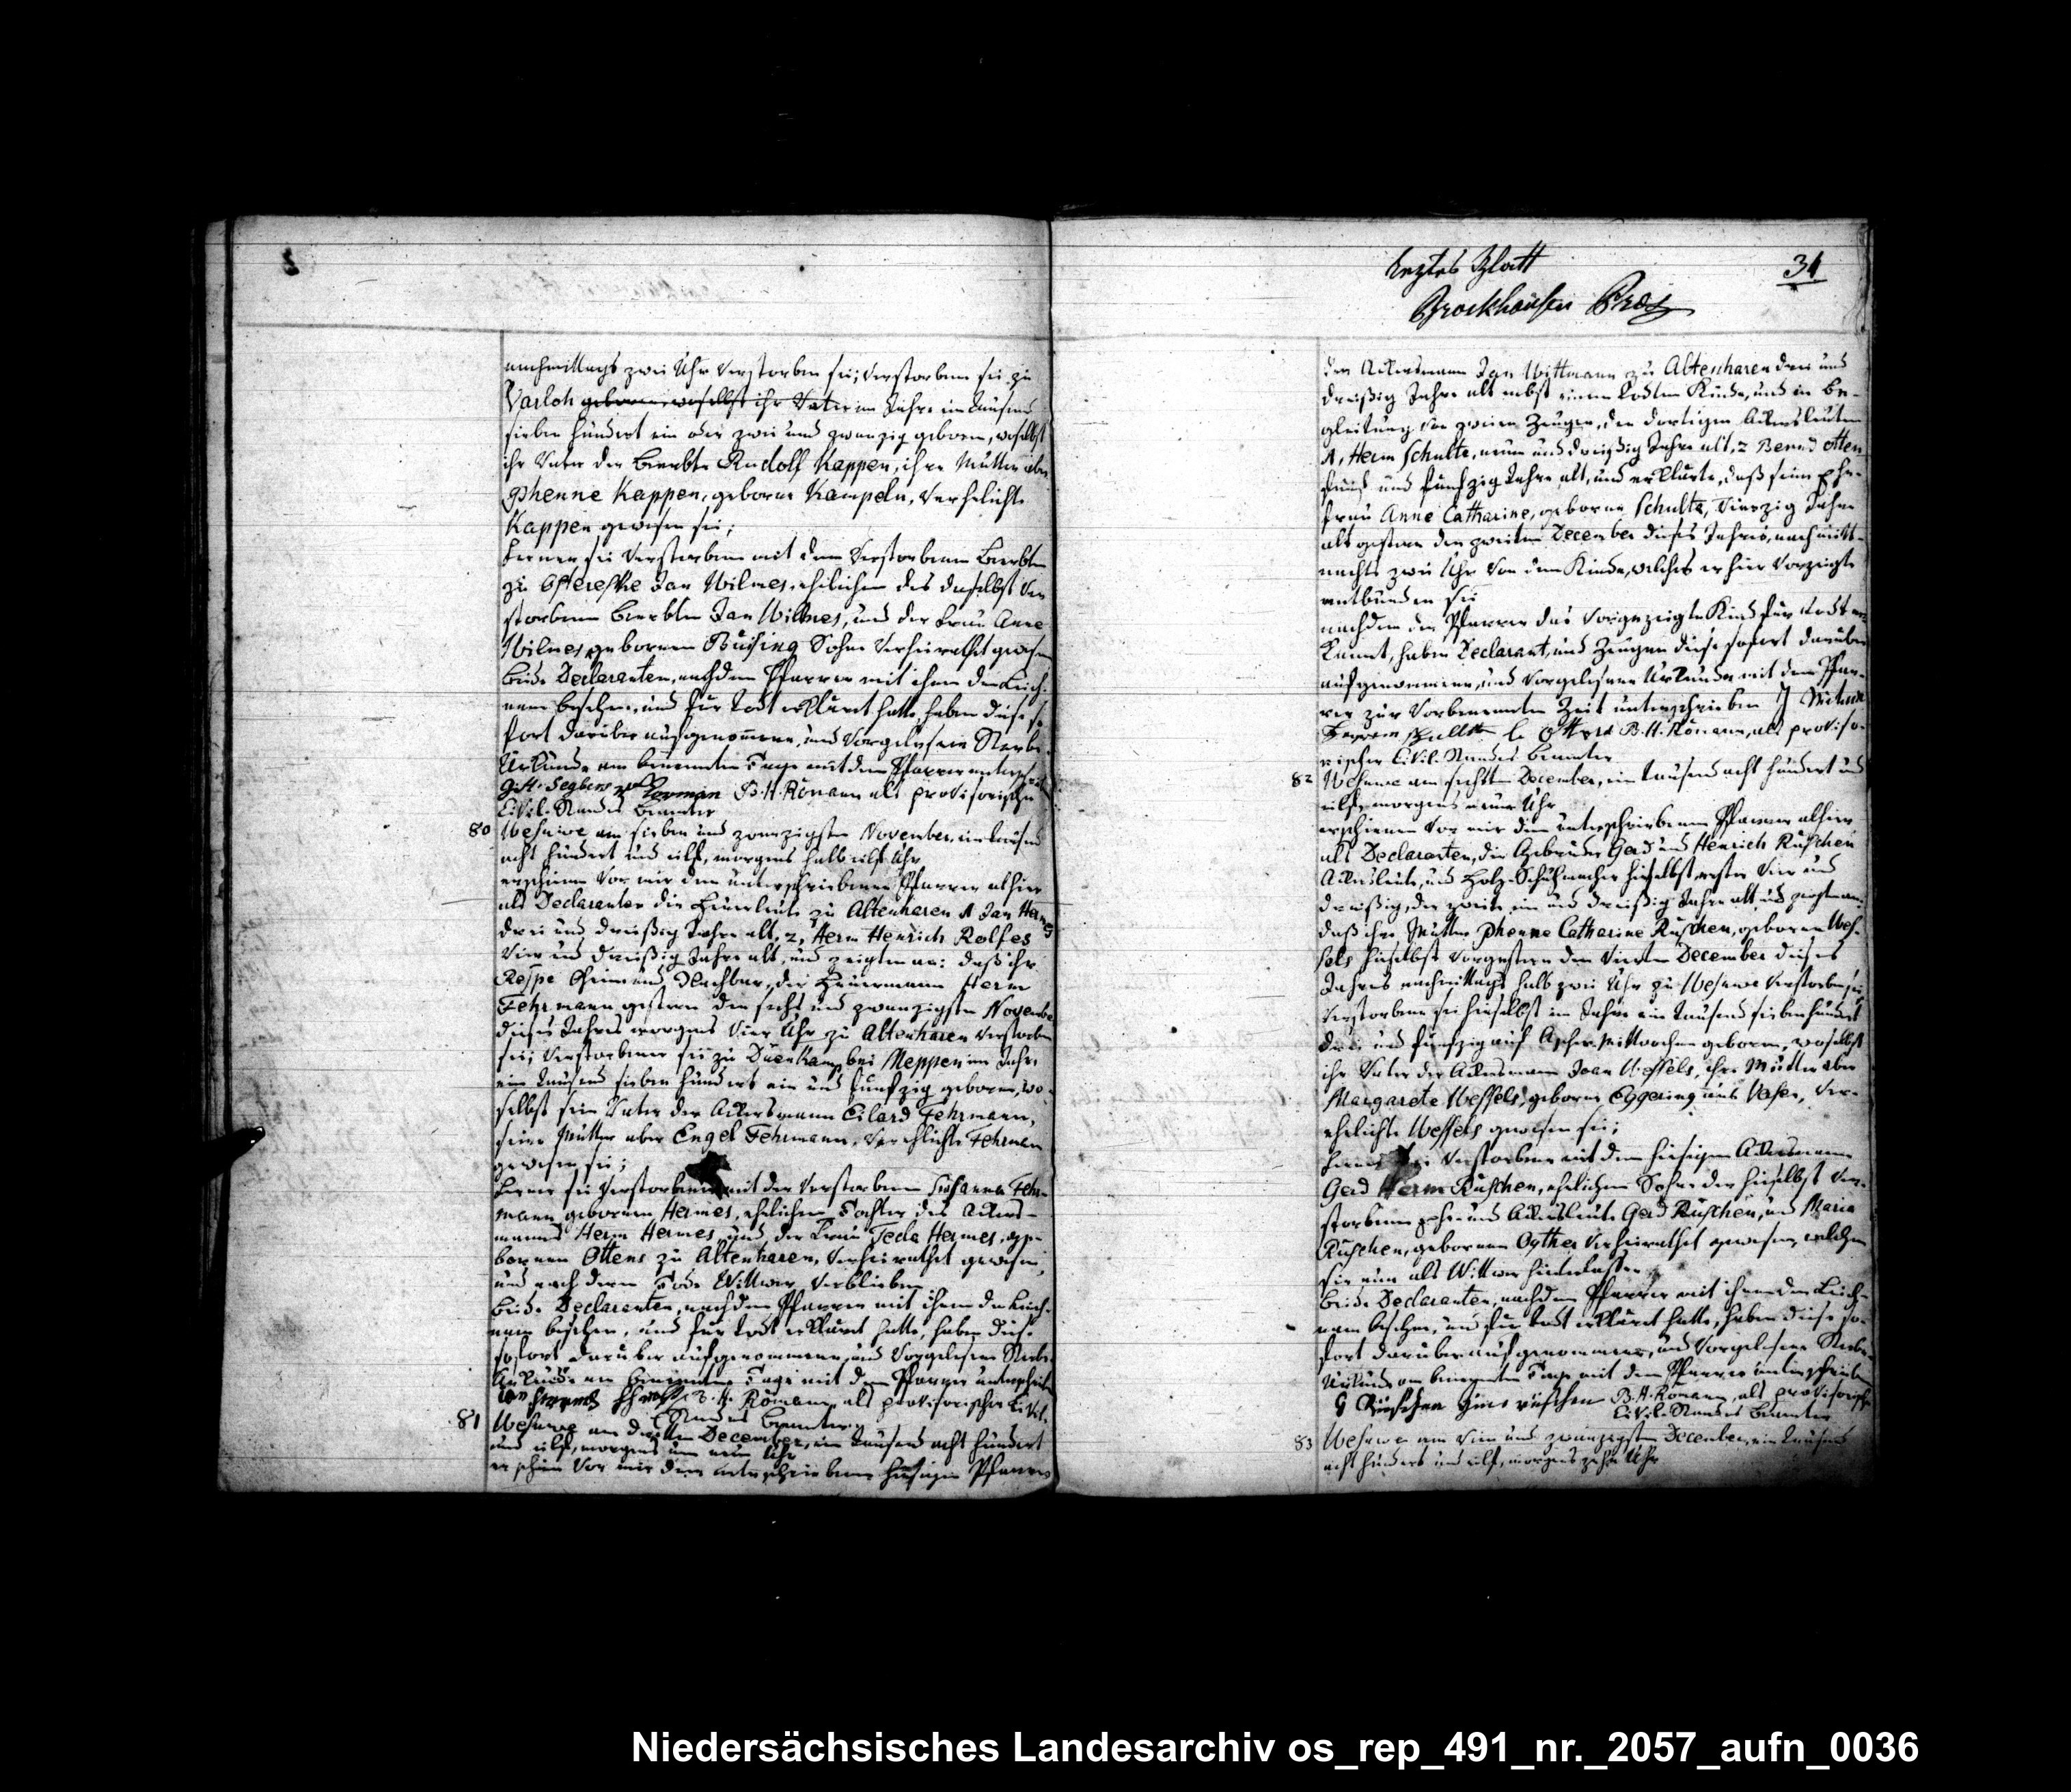 nachmittags zwei Uhr verstorben sei; verstorbene sei zu
Varloh geboren, woselbst ihr Vater im Jahre ein tausend
sieben hundert ein oder zwei und zwanzig geboren, woselbst
ihr Vater der Beerbte Rudolf Kappen, ihre Mutter aber
Phenne Kappen, geborne Kampeln, verehelichte
Kappen gewesen sei;
ferner sei verstorbene mit dem verstorbenen Beerbten
zu Jan Wilmes, ehelichen des daselbst ver
storbenen Beerbten Jan Wilmes, und der Frau Anne
Wilmes, gebornen Büsing Sohne verheirathet gewesen
beide Declaranten, nachdem Pfarrer mit ihnen den Leich-
nam besehen, und für todt erklärt hatte, haben diese so
fort darüber aufgenommene, und vorgelesene Sterbe-
Urkunde am benannten Tage mit dem Pfarrer unterschrieben
B. H. Römann als provisorischer
Civil-Standes Beamter
80 Wesuwe am sieben und zwanzigsten November, ein tausend
acht hundert und eilf, morgens halb eilf Uhr
erschienen vor mir dem unterschriebenen Pfarrer alhier
als Declaranten die Heuerleute zu Altenharen 1 Jan Hermes
drei und dreißig Jahre alt, 2, Herm Henrich Rolfes
vier und dreißig Jahre alt, und zeigten an: daß ihr
Respe Oheim und Nachbar, der Heuermann Herm
Fehrmann gestern den sechs und zwanzigsten November
dieses Jahres morgens vier Uhr zu Altenharen verstorben
sei; verstorbener sei zu Duenkamp bei Meppen im Jahre
ein tausend sieben hundert ein und funfzig geboren, wo-
selbst sein Vater der Ackersmann Eilard Fehrmann,
seine Mutter aber Engel Fehrmann, verehlichte Fehrman
gewesen sei;
ferner sei verstorbener mit der verstorbenen Susanna Fehr-
mann gebornen Hermes, ehelichen Tochter des Ackers-
manns Herm Hermes, und der Frau Teda Hermes, ge-
bornen Ottens zu Altenharen, verheirathet gewesen,
und nach deren Tode Wittwer verblieben
beide Declaranten, nachdem Pfarrer mit ihnen den Leich-
nam besehen, und für todt erklärt hatte, haben diese
sofort darüber aufgenommene, und vorgelesene Sterbe-
Urkunde am benannten Tage mit dem Pfarrer unterschrieben
B. H. Römann als provisorischer Civil-
Standes Beamter
81 Wesuwe am dritten December, ein tausend acht hundert
und eilf, morgens um neun Uhr
erschien vor mir dem unterschriebenen hiesigen Pfarrer
letztes Blatt
31
Brockhausen
der Ackersmann Jan Wittmann zu Altenharen drei und
dreißig Jahre alt nebst einem todten Kinde, und in Be-
gleitung von zweien Zeugen, den dortigen Ackersleuten
1, Herm Schulte, neun und dreißig Jahre alt, 2 Bernd Otten
fünf und funfzig Jahre alt, und erklärte, daß seine Ehe-
frau Anne Catharine, geborne Schulte, vierzig Jahre
alt gestern den zweiten December dieses Jahres, nachmitt-
nachts zwei Uhr von dem Kinde, welches er hier vorzeigte
entbunden sei
nachdem der Pfarrer das vorgezeigte Kind für todt er-
kannt, haben Declarant, und Zeugen diese sofort darüber
aufgenommene, und vorgelesene Urkunde mit dem Pfar-
rer zur vorbenannten Zeit unterschrieben
B. H. Römann, als proviso-
rischer Civil-Standes Beamter
82 Wesuwe am sechsten December, ein tausend acht hundert und
eilf, morgens neun Uhr
erschienen vor mir dem unterschriebenen Pfarrer alhier
als Declaranten, die Gebrüder Gerd und Henrich Ruschen
Ackersleute, und Holz-Schuhmacher hieselbst, erster vier und
dreißig, der zweite ein und dreißig Jahre alt, und zeigten an:
daß ihre Mutter Phenne Catharine Ruschen, geborne Wes-
sels hieselbst vorgestern den vierten December dieses
Jahres nachmittags halb zwei Uhr zu Wesuwe verstorben sei
verstorbene sei hieselbst im Jahre ein tausend sieben hundert
drei und funfzig auf Ascher-Mittwochen geboren, woselbst
ihr Vater der Ackersmann Joan Wessels, ihre Mutter aber
Margarete Wessels, geborne Eggering aus Versen, ver-
ehelichte Wessels gewesen sei;
ferner sei verstorbene mit dem hiesigen Ackersmanne
Gerd Herm Ruschen, ehelichen Sohne der hieselbst ver-
storbenen Ehe- und Ackersleute Gerd Ruschen, und Maria
Ruschen, gebornen Oythes verheirathet gewesen, welchen
sie nun als Wittwer hinterlasse
beide Declaranten, nachdem Pfarrer mit ihnen den Leich-
nam besehen, und für todt erklärt hatte, haben diese so-
fort darüber aufgenommene, und vorgelesene Sterbe-
Urkunde am benannten Tage mit dem Pfarrer unterschrieben
G Ruschen Hinr ruschen B. H. Römann, als provisorischer
Civil-Standes Beamter
83 Wesuwe am vier und zwanzigsten December, ein tausend
acht hundert und eilf, morgens zehn Uhr
Niedersächsisches Landesarchiv os_rep_491_nr._2057_aufn_0036